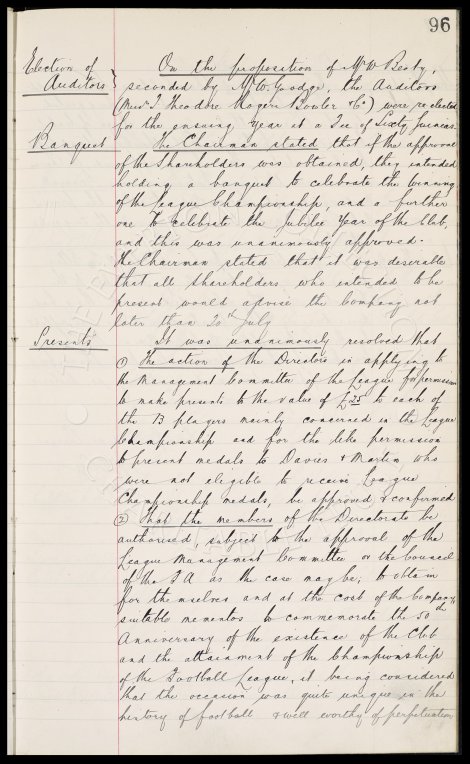 96
Election of
Auditors }
On the proposition of Mr W. Beaty,
seconded by Mr W. Godge, the Auditors
(Messrs T Theodore Rogers Bowler & Co) were re elected
for the ensuing Year at a Fee of Sixty Guineas.
Banquet
The Chairman stated that if the approval
of the Shareholders was obtained, they intended
holding a banquet to celebrate the winning
of the League Championship, and a further
one to celebrate the Jubilee Year of the Club,
and this was unanimously approved.
The Chairman stated that it was desirable
that all Shareholders who intended to be
present would advise the Company not
later than 20th July
Presents
It was unanimously resolved that
① The action of the Directors in applying to
the Management Committee of the League for permission
to make presents to the value of £25 to each of
the 13 players mainly concerned in the League
Championship and for the like permission
to present medals to Davies & Martin, who
were not eligible to receive League
Championship medals, be approved & confirmed
② That the members of the Directorate be
authorised, subject to the approval of the
League Management Committee or the Council
of the F A as the case may be, to obtain
for themselves and at the cost of the Company,
suitable mementos to commemorate the 50th
Anniversary of the existence of the Club
and the attainment of the Championship
of the Football League, it being considered
that the occasion was quite unique in the
history of football & well worthy of perpetuation